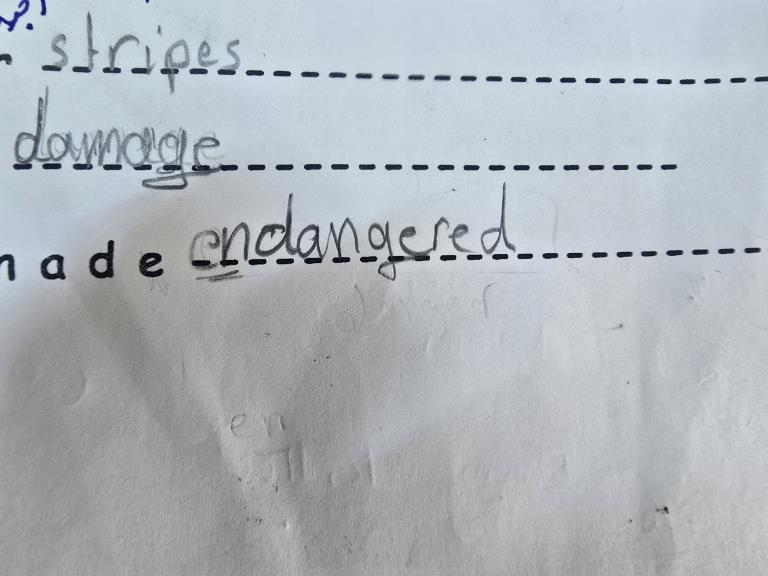 stripes
damage
made endangered
en